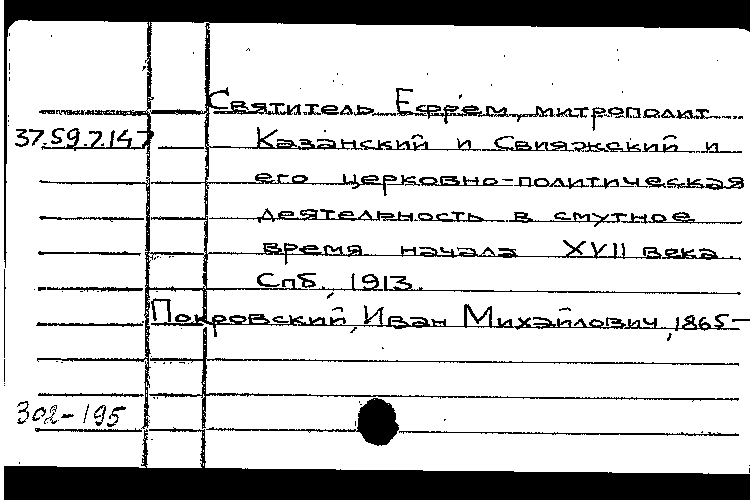 Святитель Ефрем, митрополит
37.59.7.147 Казанский и Свияжский и
его церковно-политическая
деятельность в смутное
время начала XVII века.
Спб., 1913.
Покровский, Иван Михайлович, 1865-
302-195